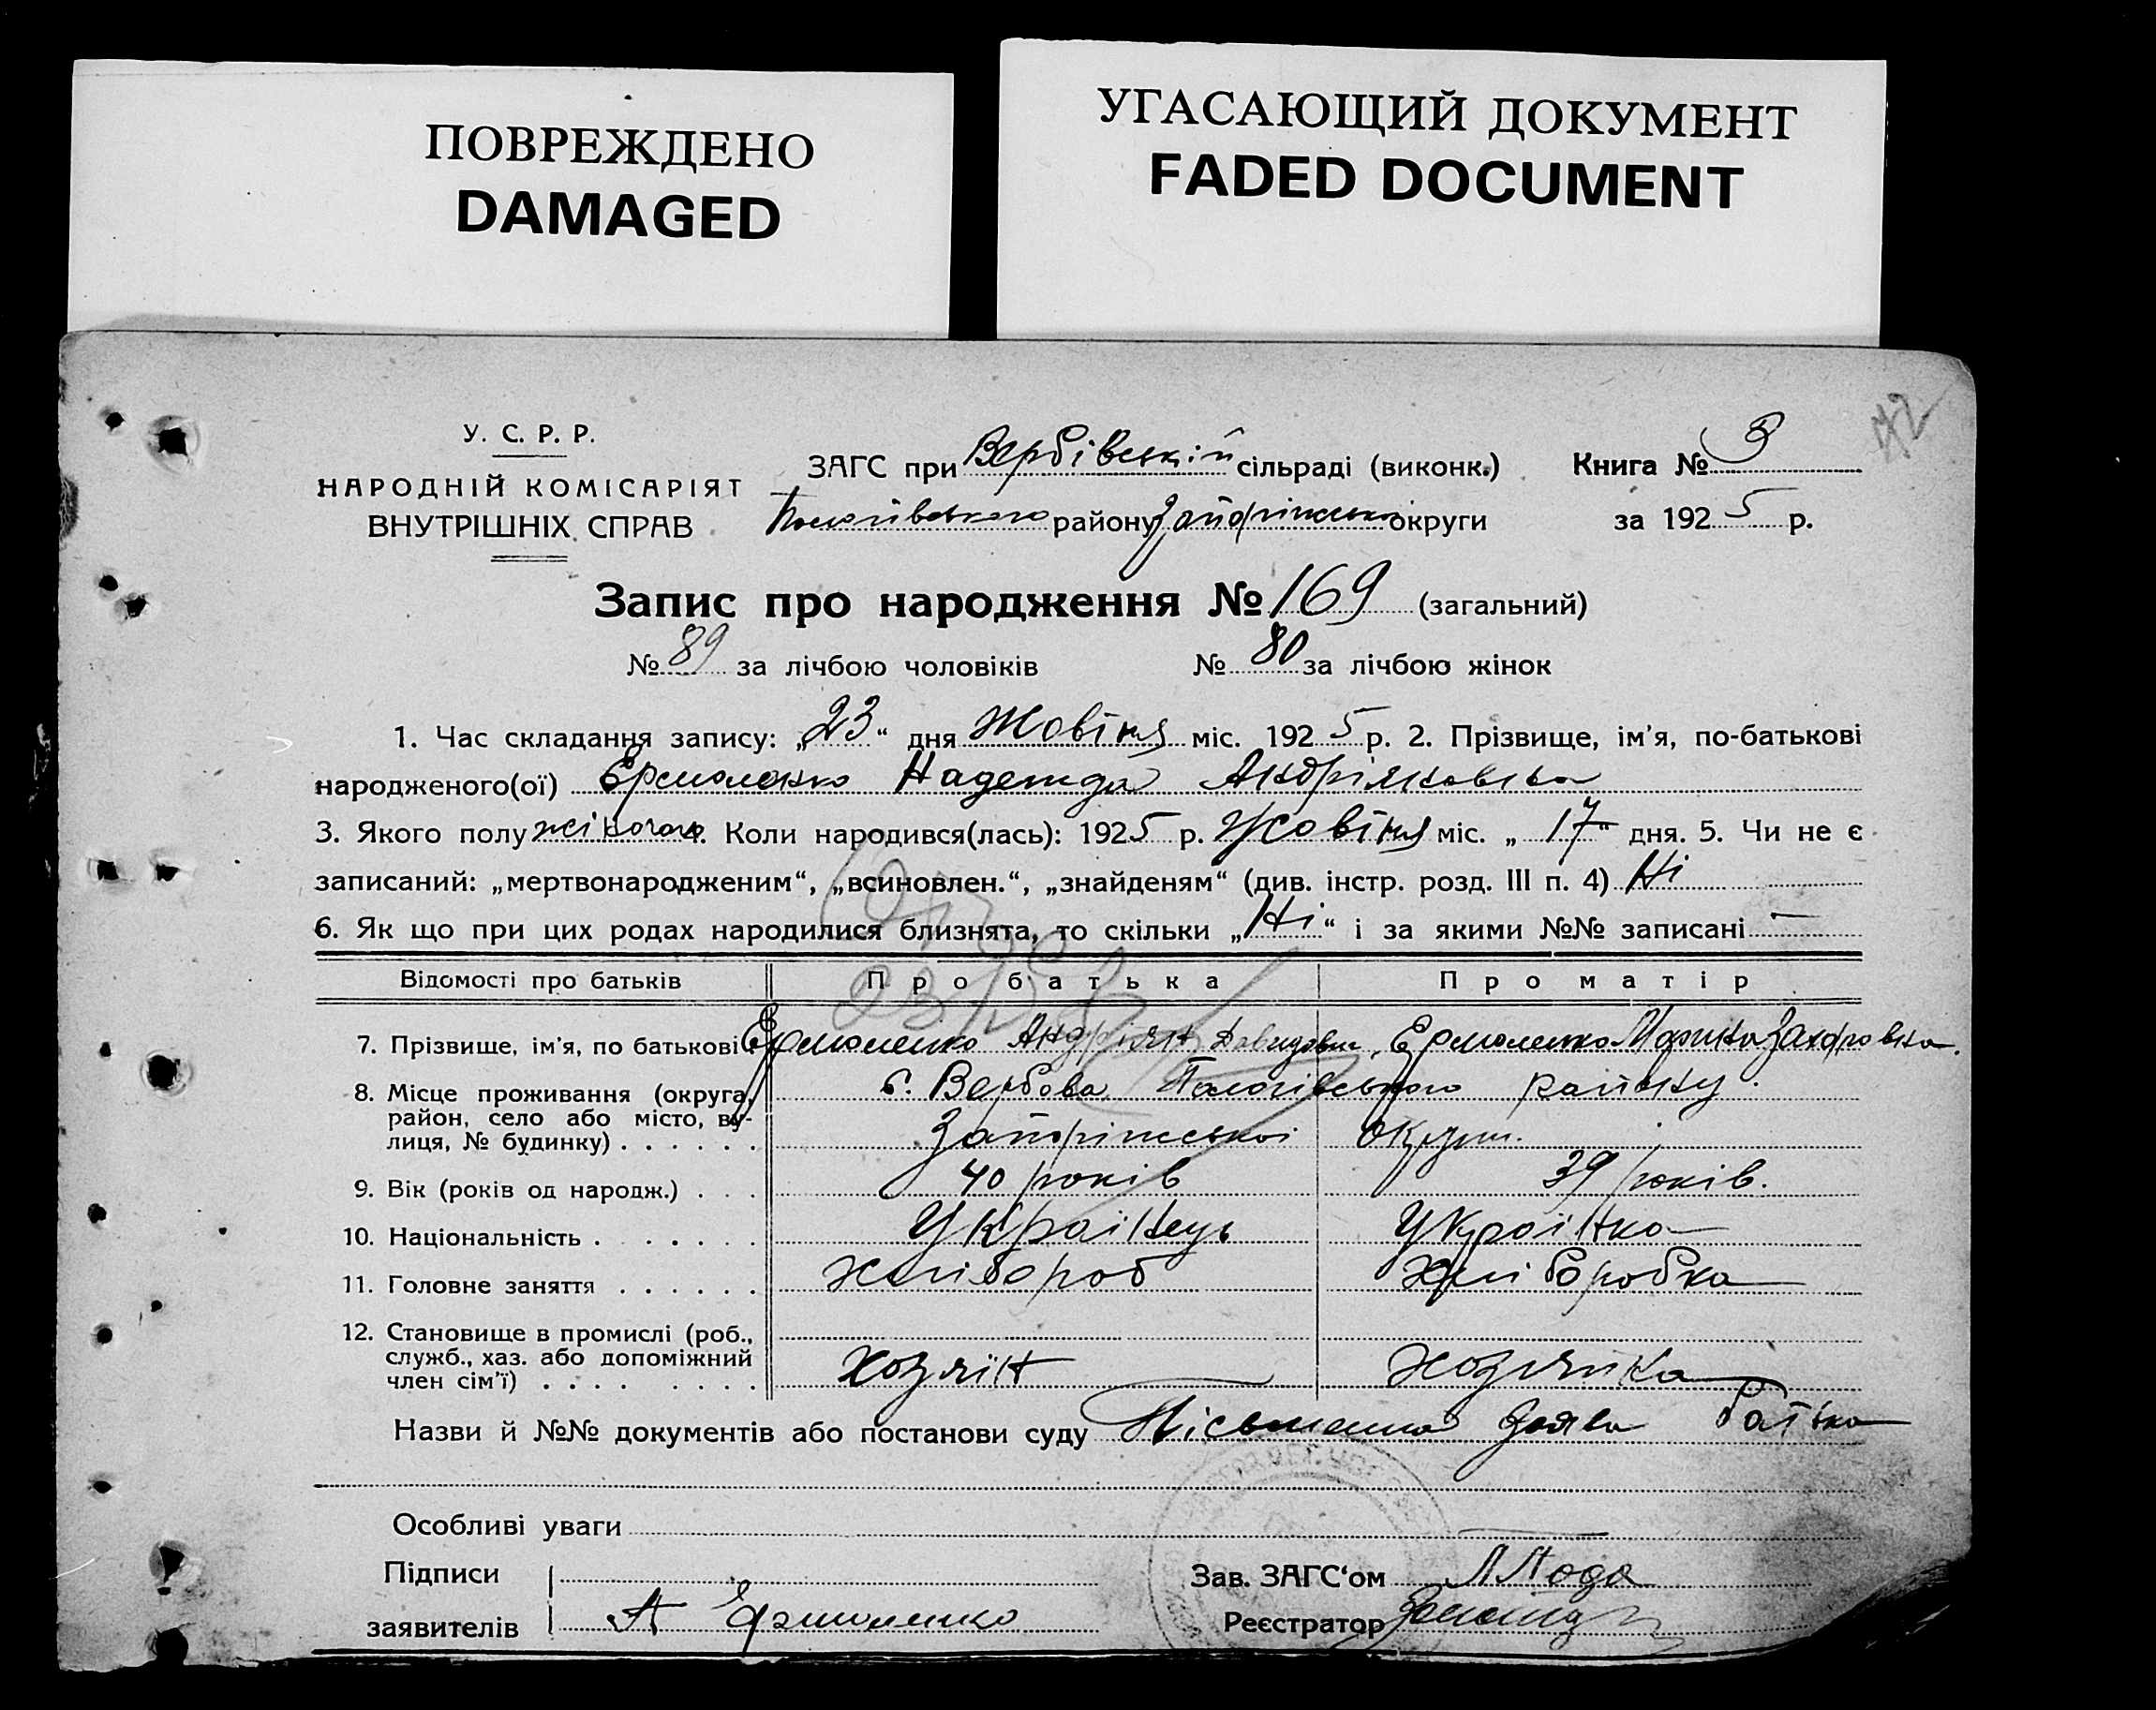 ПОВРЕЖДЕНО
DAMAGED
УГАСАЮЩИЙ ДОКУМЕНТ
FADED DOCUMENT
У. С. Р. Р.
НАРОДНІЙ КОМІСАРІЯТ
ВНУТРІШНІХ СПРАВ
ЗАГС при Вербівській сільраді (виконк.)
Пологівського району Запоріжської округи
Книга № 3
за 1925 р.
Запис про народження № 169 (загальний)
№ 89 за лічбою чоловіків № 80 за лічбою жінок
1. Час складання запису: „23“ дня Жовтня міс. 1925 р. 2. Прізвище, ім’я, по-батькові
народженого(ої) Єрмоленко Надежда Андріяновна
3. Якого полу жіночого 4. Коли народився(лась): 1925 р. Жовтня міс. „17“ дня. 5. Чи не є
записаний: „мертвонародженим“, „всиновлен.“, „знайденям“ (див. інстр. розд. III п. 4) Ні
6. Як що при цих родах народилися близнята, то скільки „Ні“ і за якими №№ записані —
Відомості про батьків Про батька Про матір
7. Прізвище, ім’я, по батькові Єрмоленко Андріян Давидович, Єрмоленко Марина Захаровна.
8. Місце проживання (округа, с. Вербова Пологівського району.
район, село або місто, ву-
лиця, № будинку) . . . . . . Запоріжської округи.
9. Вік (років од народж.) . . . 40 років 39 років.
10. Національність . . . . . . . Українець Українка
11. Головне заняття . . . . . . Хлібороб Хліборобка
12. Становище в промислі (роб.,
служб., хаз. або допоміжний
член сім’ї) . . . . . . . . Хозяїн Хозяйка
Назви й №№ документів або постанови суду Пісьменна заява батька
Особливі уваги —
Підписи Зав. ЗАГС‘ом
заявителів А Єрмоленко Реєстратор